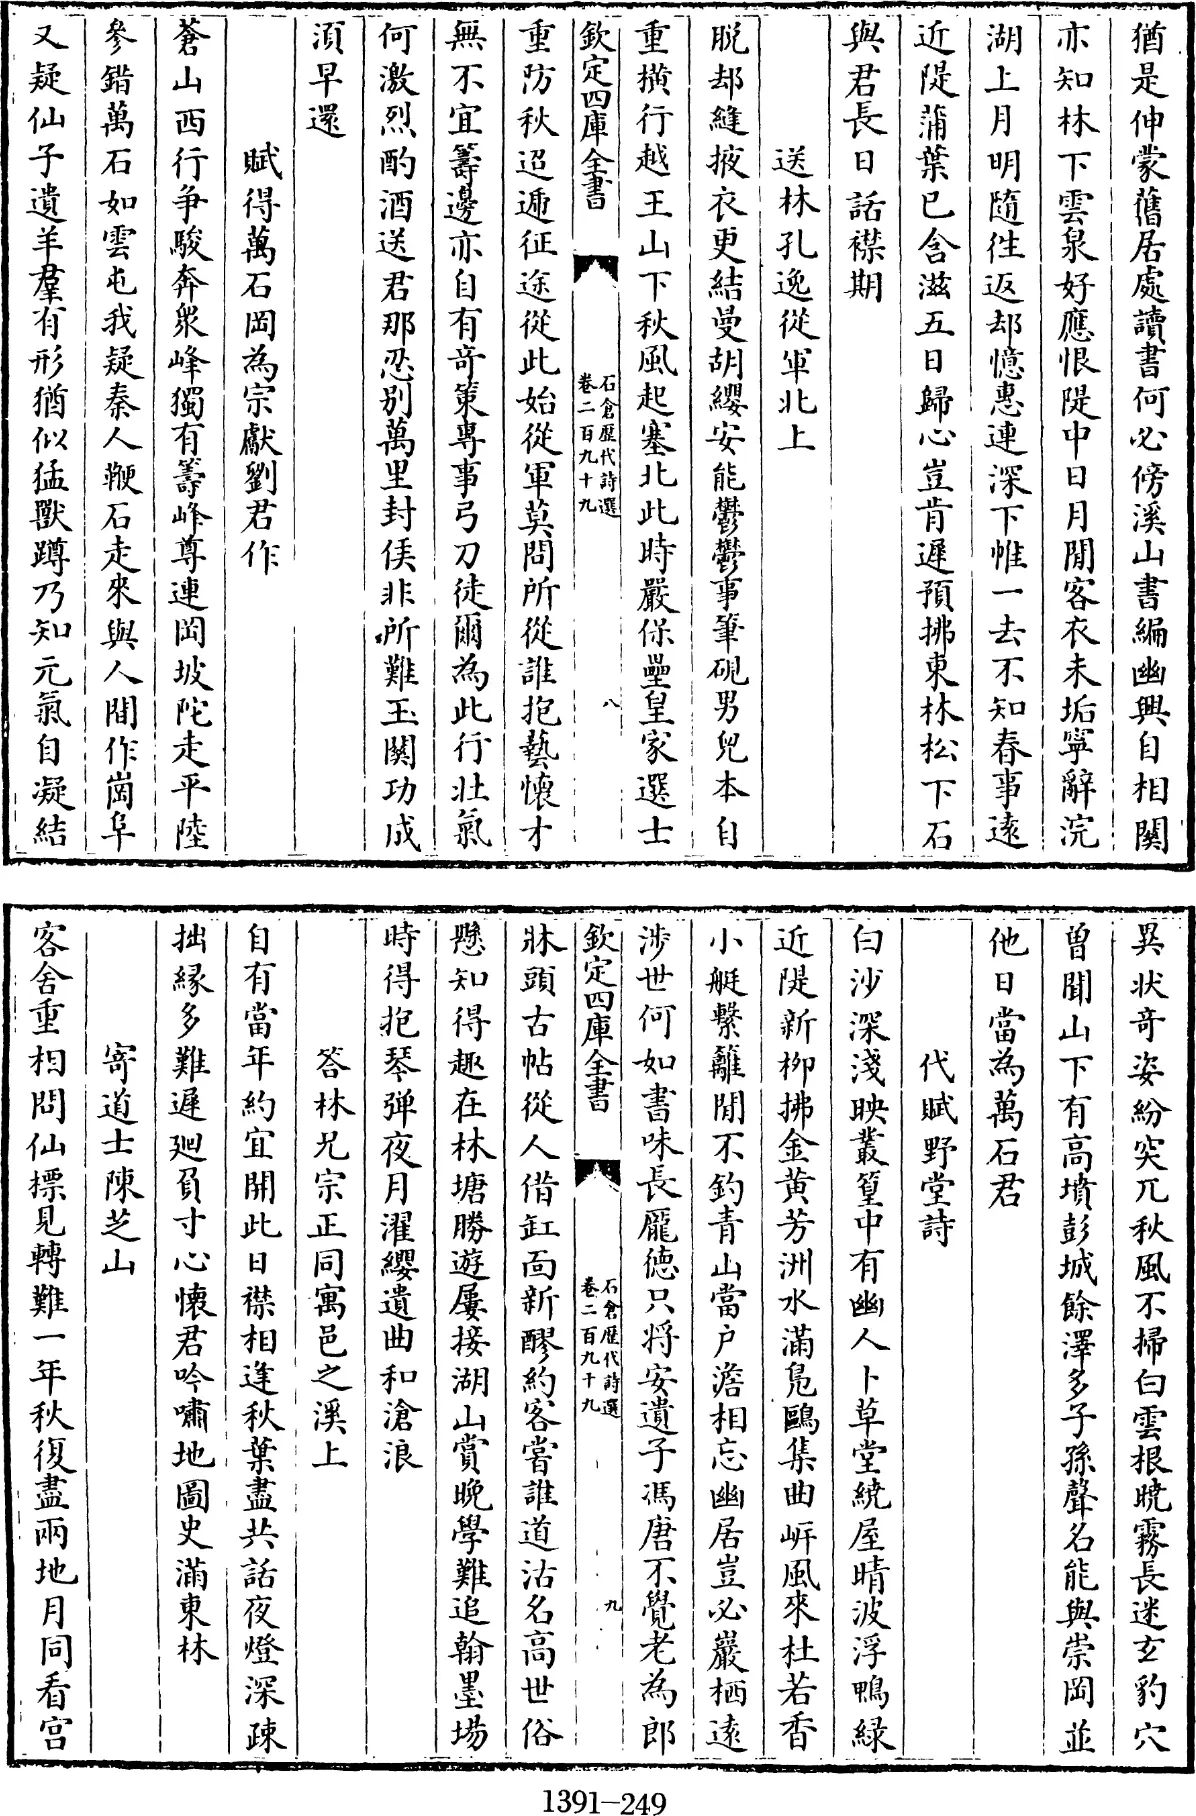 猶是伸蒙舊居處讀書何必傍溪山書編幽興自相關
亦知林下雲泉好應恨隄中日月閒客衣未垢寧辭浣
湖上月明隨往返却憶惠連深下帷一去不知春事遠
近隄蒲葉已含滋五日歸心豈肯遲預拂東林松下石
與君長日話襟期
送林孔逸從軍北上
脱却縫掖衣更結曼胡纓安能鬱鬱事筆硯男兒本自
重橫行越王山下秋風起塞北此時嚴保壘皇家選士
欽定四庫全書
石倉歷代詩選
卷二百九十九
八
重防秋迢遞征途從此始從軍莫問所從誰抱藝懷才
無不宜籌邊亦自有奇策專事弓刀徒爾為此行壯氣
何激烈酌酒送君那忍別萬里封侯非所難玉關功成
湏早還
賦得萬石岡為宗獻劉君作
蒼山西行争駿奔衆峰獨有籌峰尊連岡坡陀走平陸
參錯萬石如雲屯我疑秦人鞭石走來與人間作崗阜
又疑仙子遺羊羣有形猶似猛獸蹲乃知元氣自凝結
異狀奇姿紛突兀秋風不掃白雲根曉霧長迷玄豹穴
曽聞山下有高墳彭城餘澤多子孫聲名能與崇岡並
他日當為萬石君
代賦野堂詩
白沙深淺映叢篁中有幽人卜草堂繞屋晴波浮鴨緑
近隄新柳拂金黄芳洲水滿鳬鷗集曲岍風來杜若香
小艇繋籬閒不釣青山當户澹相忘幽居豈必巖栖遠
涉世何如書味長龎德只将安遺子馮唐不覺老為郎
欽定四庫全書
石倉歷代詩選
卷二百九十九
九
牀頭古帖從人借缸面新醪約客嘗誰道沽名高世俗
懸知得趣在林塘勝遊屢接湖山賞晚學難追翰墨場
時得抱琴弹夜月濯纓遺曲和滄浪
答林兄宗正同寓邑之溪上
自有當年約宜開此日襟相逢秋葉盡共話夜燈深疎
拙緣多難遲廻負寸心懷君吟嘯地圖史滿東林
寄道士陳芝山
客舍重相問仙標見轉難一年秋復盡兩地月同看宫
1391-249